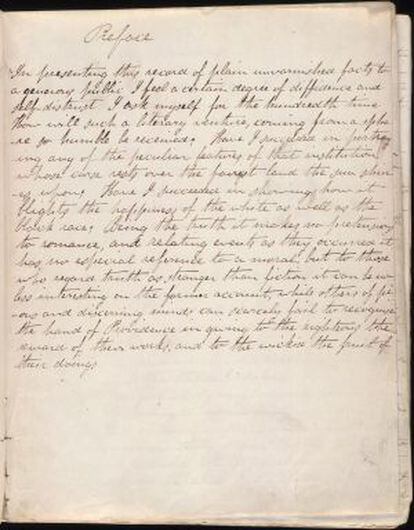 Preface
In presenting this record of plain unvarnished facts to
a generous public I feel a certain degree of diffidence and
self-distrust. I ask myself for the hundredth time
how will such a literary venture, coming from a sphe
re so humble be received? Have I succeeded in portray
ing any of the peculiar features of that institution
whose curse rests over the fairest land the sun shin
es upon? Have I succeeded in showing how it
blights the happiness of the white as well as the
black race? Being the truth it makes no pretensions
to romance, and relating events as they occurred it
has no especial reference to a moral, but to those
who regard truth as stranger than fiction it can be no
less interesting on the former account, while others of pi
ous and discerning minds can scarcely fail to recognise
the hand of Providence in giving to the righteous the
reward of their works, and to the wicked the fruit of
their doings.